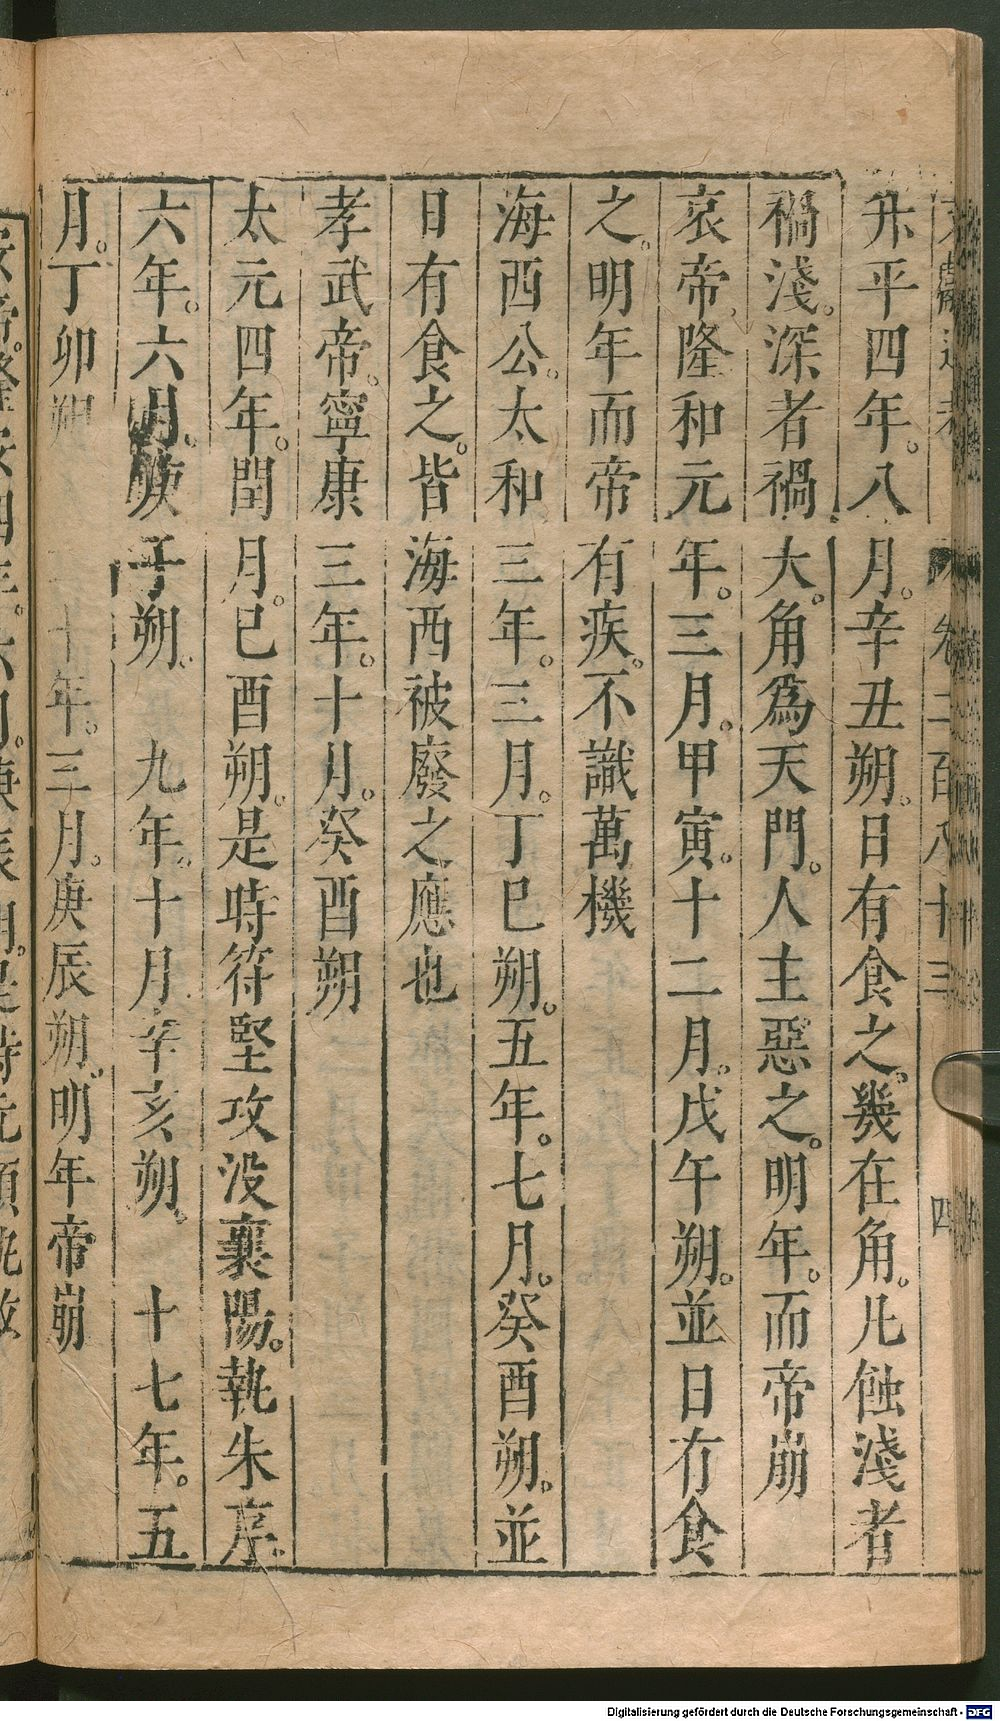 文獻通考 卷二百八十三 四
升平四年。八月。辛丑朔。日有食之。幾在角。凡蝕淺者
禍淺。深者禍大。角爲天門。人主惡之。明年。而帝崩
哀帝。隆和元年。三月。甲寅。十二月。戊午朔。並日有食
之。明年而帝有疾。不識萬機
海西公。太和三年。三月。丁巳朔。五年。七月。癸酉朔。並
日有食之。皆海西被廢之應也
孝武帝。寧康三年。十月。癸酉朔
太元四年。閏月。己酉朔。是時符堅攻没襄陽。執朱序。
六年。六月。庚子朔。 九年。十月辛亥朔。 十七年。五
月。丁卯朔 二十年。三月。庚辰朔。明年帝崩
安帝。隆安四年。六月。庚辰朔。是時元顯執政
Digitalisierung gefördert durch die Deutsche Forschungsgemeinschaft - DFG